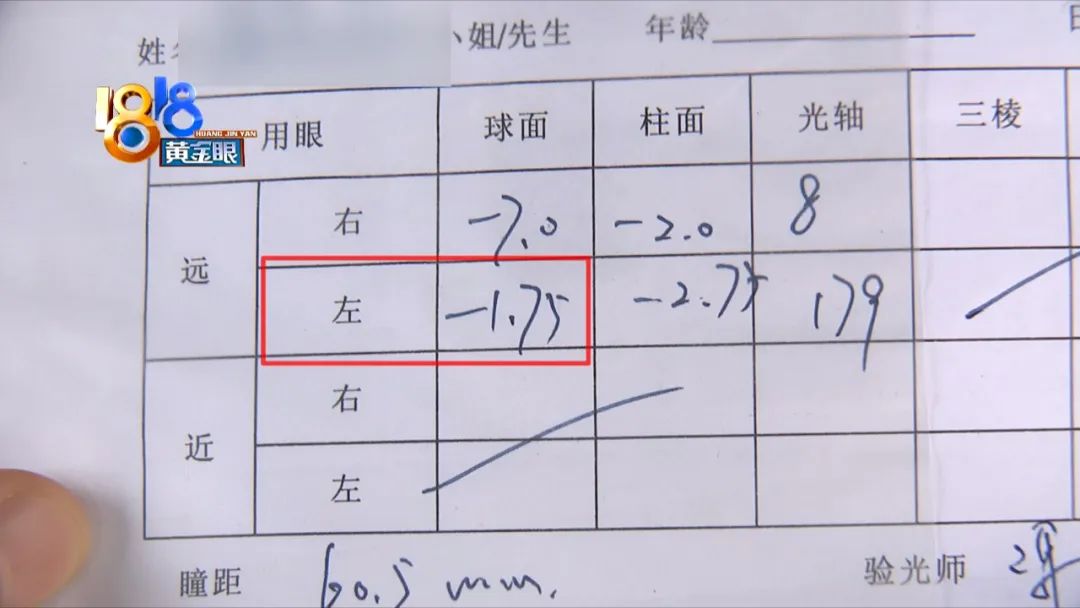 姓 小姐/先生 年龄 日
1818
HUANG JIN YAN
黄金眼
用眼 球面 柱面 光轴 三棱
远 右 -7.0 -2.0 8
左 -1.75 -2.75 179
近 右
左
瞳距 60.5 mm. 验光师